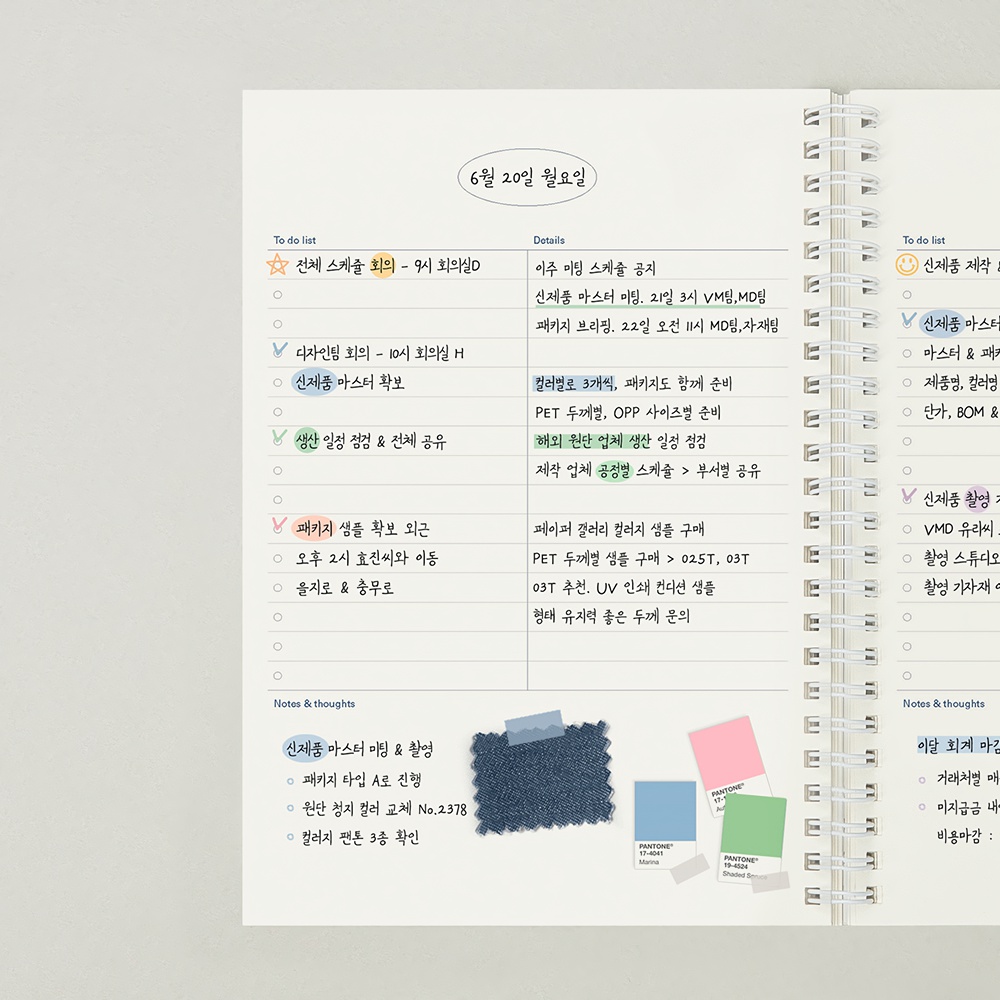 6월 20일 월요일
To do list
전체 스케쥴 회의 - 9시 회의실D
디자인팀 회의 - 10시 회의실 H
신제품 마스터 확보
생산 일정 점검 & 전체 공유
패키지 샘플 확보 외근
오후 2시 효진씨와 이동
을지로 & 충무로
Details
이주 미팅 스케쥴 공지
신제품 마스터 미팅. 21일 3시 VM팀,MD팀
패키지 브리핑. 22일 오전 11시 MD팀,자재팀
컬러별로 3개씩, 패키지도 함께 준비
PET 두께별, OPP 사이즈별 준비
해외 원단 업체 생산 일정 점검
제작 업체 공정별 스케쥴 > 부서별 공유
페이퍼 갤러리 컬러지 샘플 구매
PET 두께별 샘플 구매 > 025T, 03T
03T 추천. UV 인쇄 컨디션 샘플
형태 유지력 좋은 두께 문의
Notes & thoughts
신제품 마스터 미팅 & 촬영
패키지 타입 A로 진행
원단 청지 컬러 교체 No.2378
컬러지 팬톤 3종 확인
PANTONE®
17-4041
Marina
PANTONE®
17-1
PANTONE®
19-4524
Shaded
To do list
신제품 제작 &
신제품 마스터
마스터 & 패키
제품명, 컬러명
단가, BOM &
신제품 촬영
VMD 유리씨
촬영 스튜디오
촬영 기자재
Notes & thoughts
이달 회계 마감
거래처별 매
미지급금 내
비용마감 :